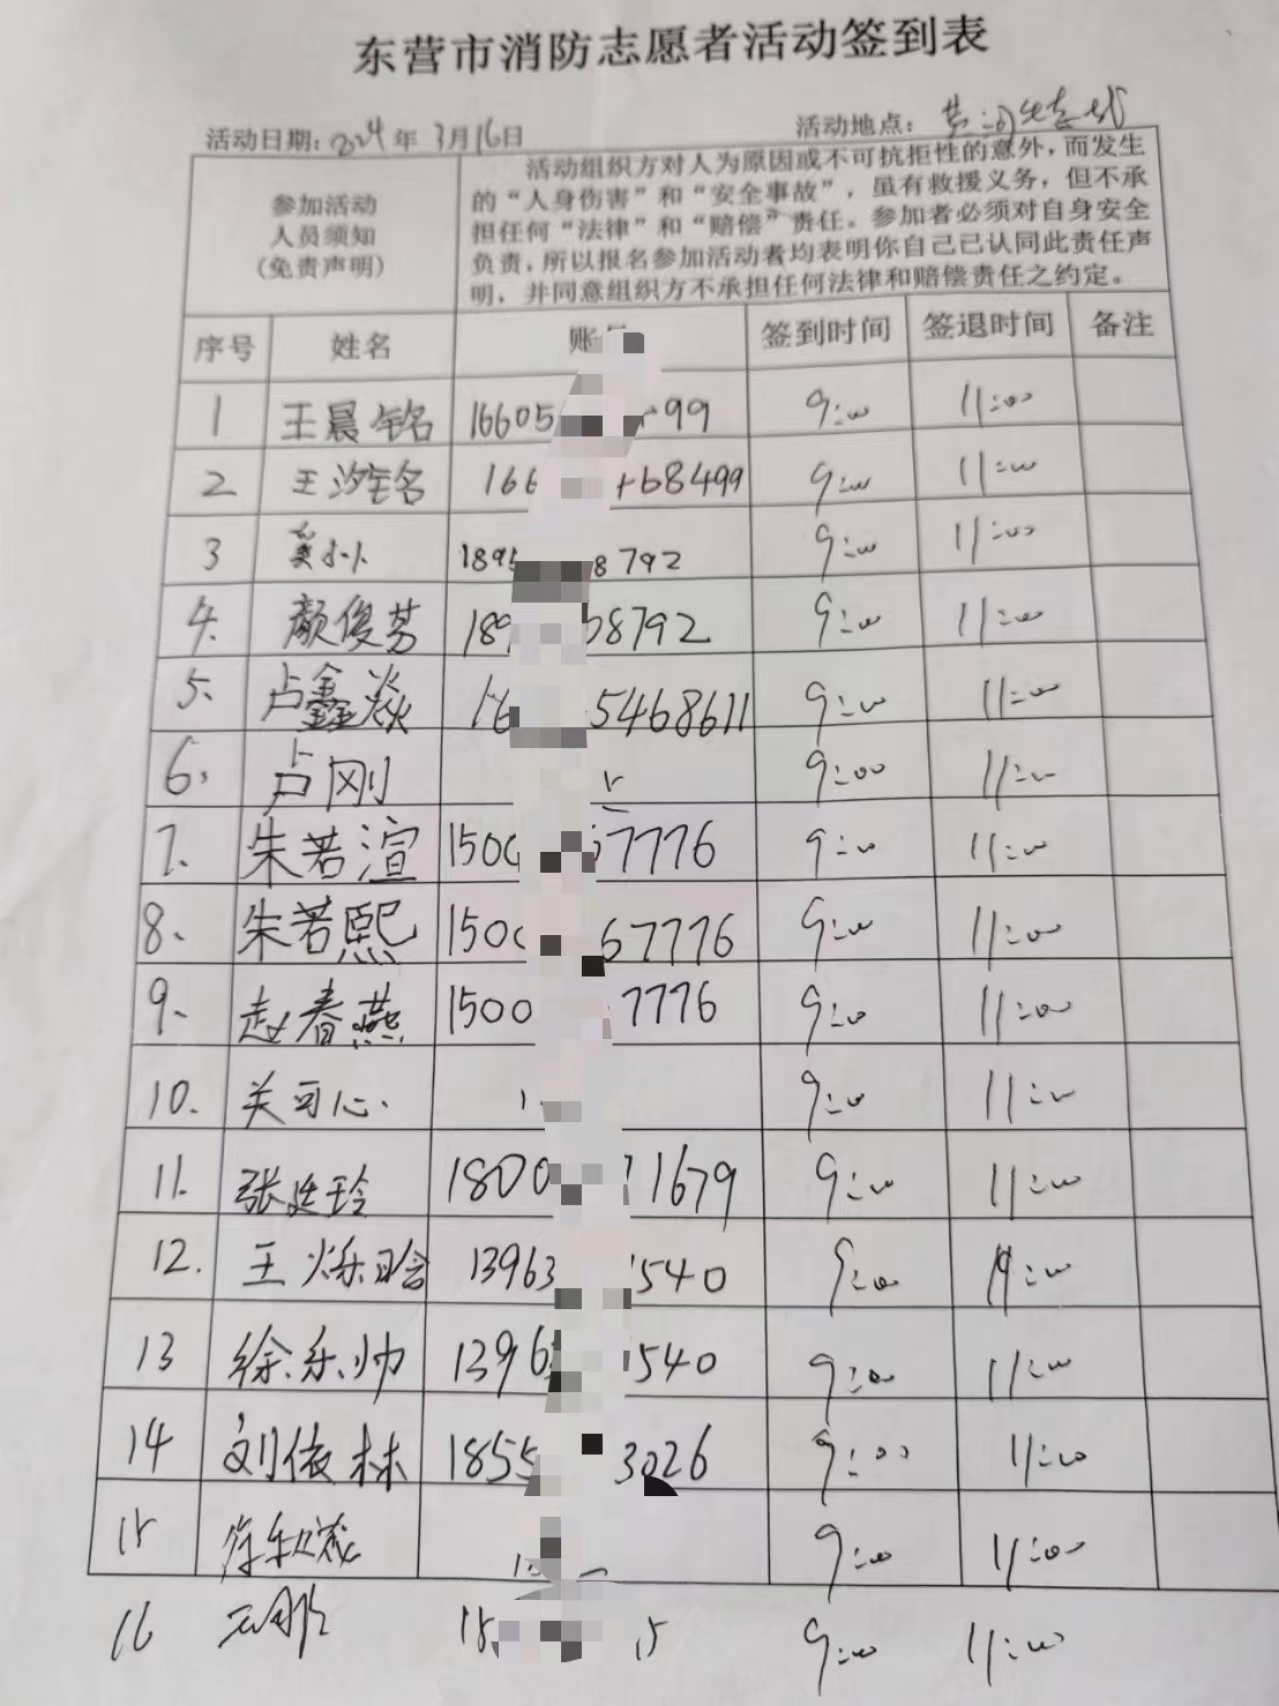 东营市消防志愿者活动签到表
活动日期：2024年3月16日 活动地点：
参加活动
人员须知
(免责声明)
活动组织方对人为原因或不可抗拒性的意外，而发生
的“人身伤害”和“安全事故”，虽有救援义务，但不承
担任何“法律”和“赔偿”责任。参加者必须对自身安全
负责，所以报名参加活动者均表明你自己已认同此责任声
明，并同意组织方不承担任何法律和赔偿责任之约定。
序号 姓名 账 签到时间 签退时间 备注
1 王晨铭 16605 99 9:00 11:00
2 王汐铭 166 68499 9:00 11:00
3 189 8792 9:00 11:00
4. 颜俊芳 189 58792 9:00 11:00
5. 卢鑫焱 16 5468611 9:00 11:00
6. 卢刚 9:00 11:00
7. 朱若渲 1500 7776 9:00 11:00
8. 朱若熙 150 67776 9:00 11:00
9. 赵春燕 1500 7776 9:00 11:00
10. 关可心. 9:00 11:00
11. 张廷玲 1800 1679 9:00 11:00
12. 王烁晗 13963 540 9:00 11:00
13 徐乐帅 1396 540 9:00 11:00
14 刘依林 1855 3026 9:00 11:00
15 9:00 11:00
16 18 15 9:00 11:00